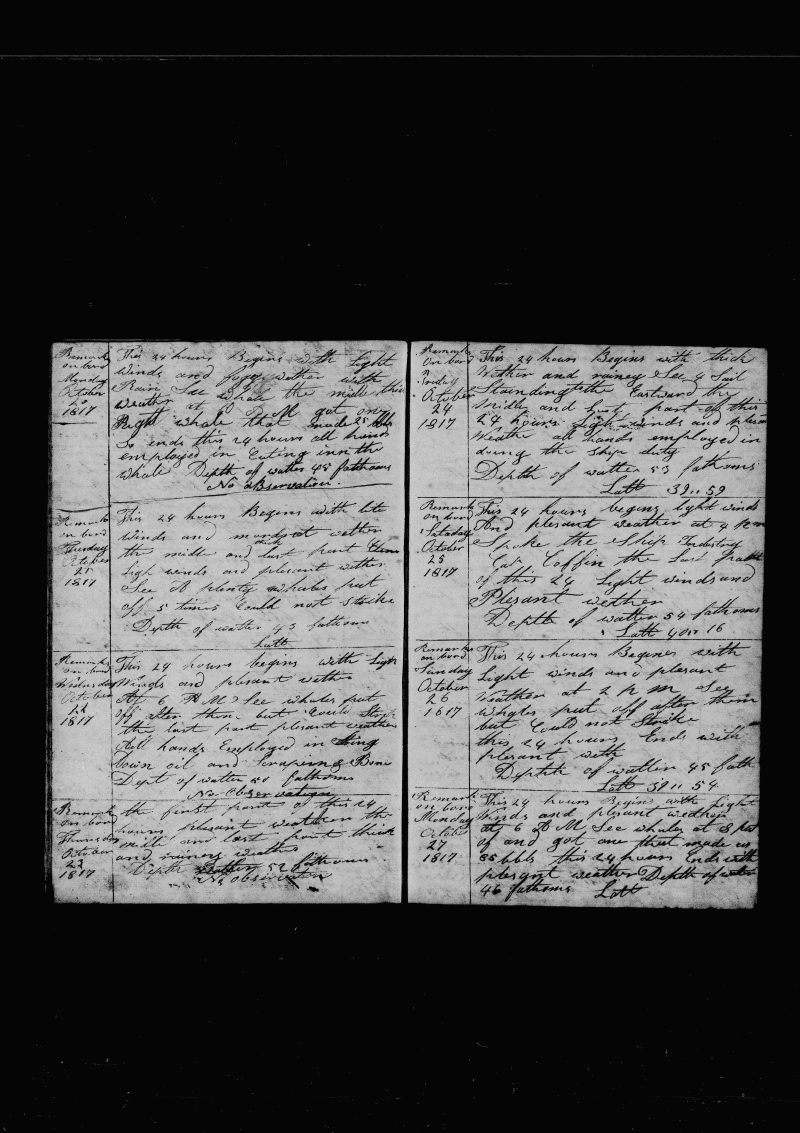 Remarks
on bord
Monday
October
20
1817
This 24 hours Begins with Light
winds and fogy wether with
Rain See whale the midle this
weather at 6 P M got on
Right whale that made 25 bbls
So ends this 24 hours all hands
employed in Cuting inn the
whale Depth of watter 45 fathoms
No observation.
Remarks
on bord
Tuesday
October
21
1817
This 24 hours Begins with lite
Winds and wether
the midle and last part
ligh winds and plesant wether
See A plenty whales put
off 5 times Could not Strike
Depth of watter 43 fathom
Latt
Remarks
on bord
Wednesday
October
1817
This 24 hours begins with Ligh
Winds and plesant wether
At 6 A M See whales put
off after them but Could
the last part plesant weather
All hands Employed in
Down oil and Scrapern & Bone
Dept of watter 50 fathoms
No Observation
Remark
on bord
Thursday
October
23
1817
the first part of this 24
hours plesant weather the
midl and last part thick
and rainery wether
Depth watter 52 fathoms
No observation
Remarks
On bord
Friday
October
24
1817
This 24 hours Begins with thick
Wether and rainey See 4 Sail
Standing to the Eastward the
Midle and last part of this
24 hours Ligh winds and plesan
Weather all hands employed in
doing the Ship duty
Depth of watter 53 fathoms
Latt 39 .. 59
Remarks
on bord
Saturday
October
25
1817
This 24 hours begins light winds
And plesant weather at 4 P m
Spoke the Ship Industry
Cap. Coffin the Last part
of this 24 Light winds and
Plesant wether
Depth of watter 54 fathoms
Latt 40 .. 16
Remarks
on bord
Sunday
October
26
1817
This 24 hours Begines with
Light winds and plesant
Weather at 2 P m See
Whales put off after them
but Could not Strike
this 24 hours Ends with
plesant weth
Depth of watter 45 fath
Latt 39 .. 54
Remark
on bord
Monday
Octobe
27
1817
This 24 hours Begins with Light
Winds and plesant wether
at 6 A M See whales at 8 put
of and got one that made us
35 bbls this 24 hours Ends with
plesant weather Depth of water
46 fathoms Latt